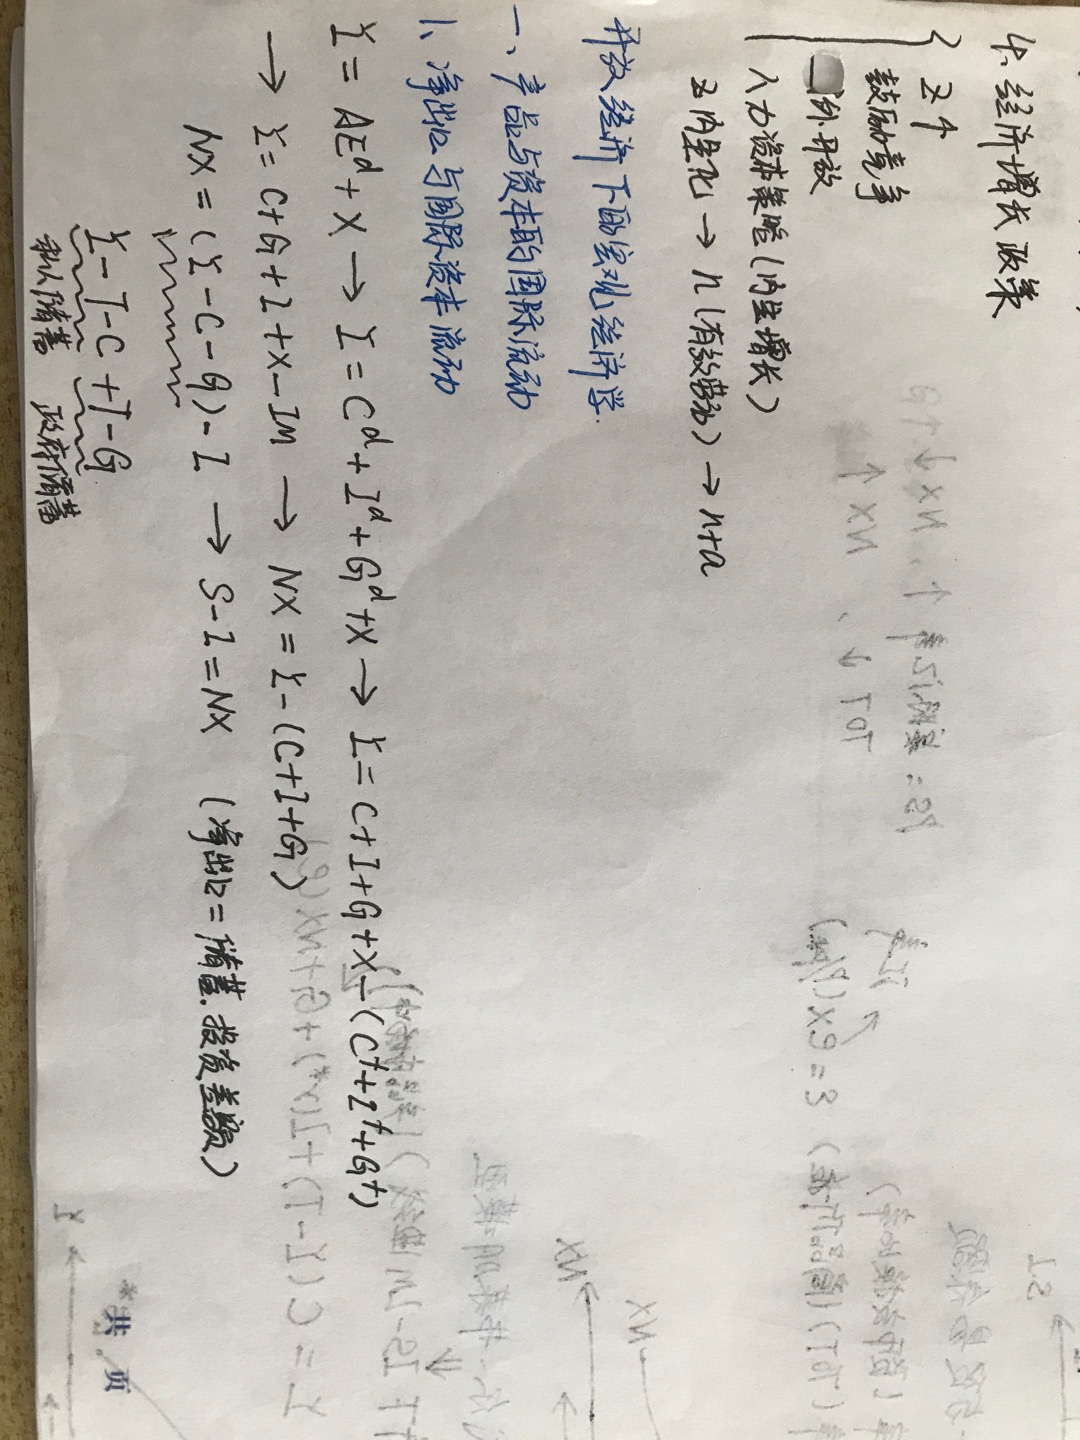 4、经济增长政策
I↑
鼓励竞争
外开放
人力资本策略(内生增长)
I内生化→n(有效劳动)→n+a
开放经济下的宏观经济学
一、产品与资本的国际流动
1、净出口与国际资本流动
Y=AE^d+X→Y=C^d+I^d+G^d+X→Y=C+I+G+X-(C^f+I^f+G^f)
→Y=C+G+I+X-IM→NX=Y-(C+I+G)
NX=(Y-C-G)-I→S-I=NX (净出口=储蓄.投资差额)
Y-T-C+T-G
私人储蓄 政府储蓄
*共 页